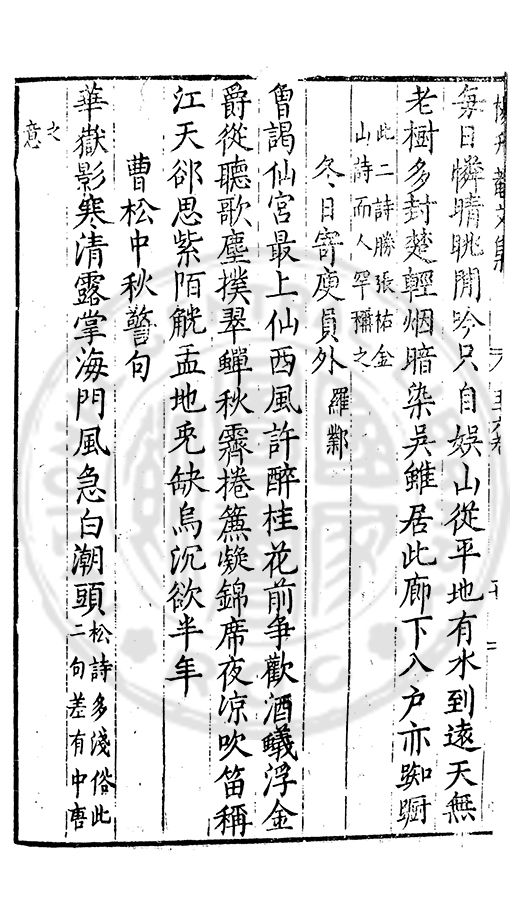 楊升菴文集
六
五十六卷
每日憐晴眺閒吟只自娛山從平地有水到遠天無
老樹多封楚輕烟暗染吳雖居此廊下入户亦踟躕
此二詩勝張祜金
山詩而人罕稱之
冬日寄庾員外 羅鄴
曾謁仙宮最上仙西風許醉桂花前爭歡酒蟻浮金
爵從聽歌塵撲翠蟬秋霽捲簾凝錦席夜凉吹笛稱
江天郤思紫陌觥盂地兎缺烏沉欲半年
曹松中秋警句
華嶽影寒清露掌海門風急白潮頭
松詩多淺俗此
二句差有中唐
之
意